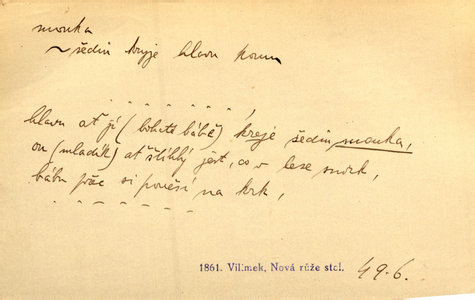 mouka
~ šedin kryje hlavu komu
- - - - - - - ,
hlavu ať jí (bohaté bábě) kreje šedin mouka,
on (mladík) ať štíhlý jest, co v lese smrk,
bábu přec si pověsí na krk,
- - - - - -
1861. Vilímek, Nová růže stol. 49.6.